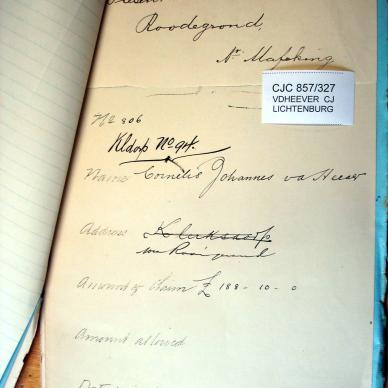 Present
Roodegrond,
Nr Mafeking
CJC 857/327
VDHEEVER CJ
LICHTENBURG
No 906
Kldorp No 94.
Name Cornelis Johannes vd Heever
Address Klerksdorp
Amount of Claim £ 188 - 10 - 0
Amount allowed